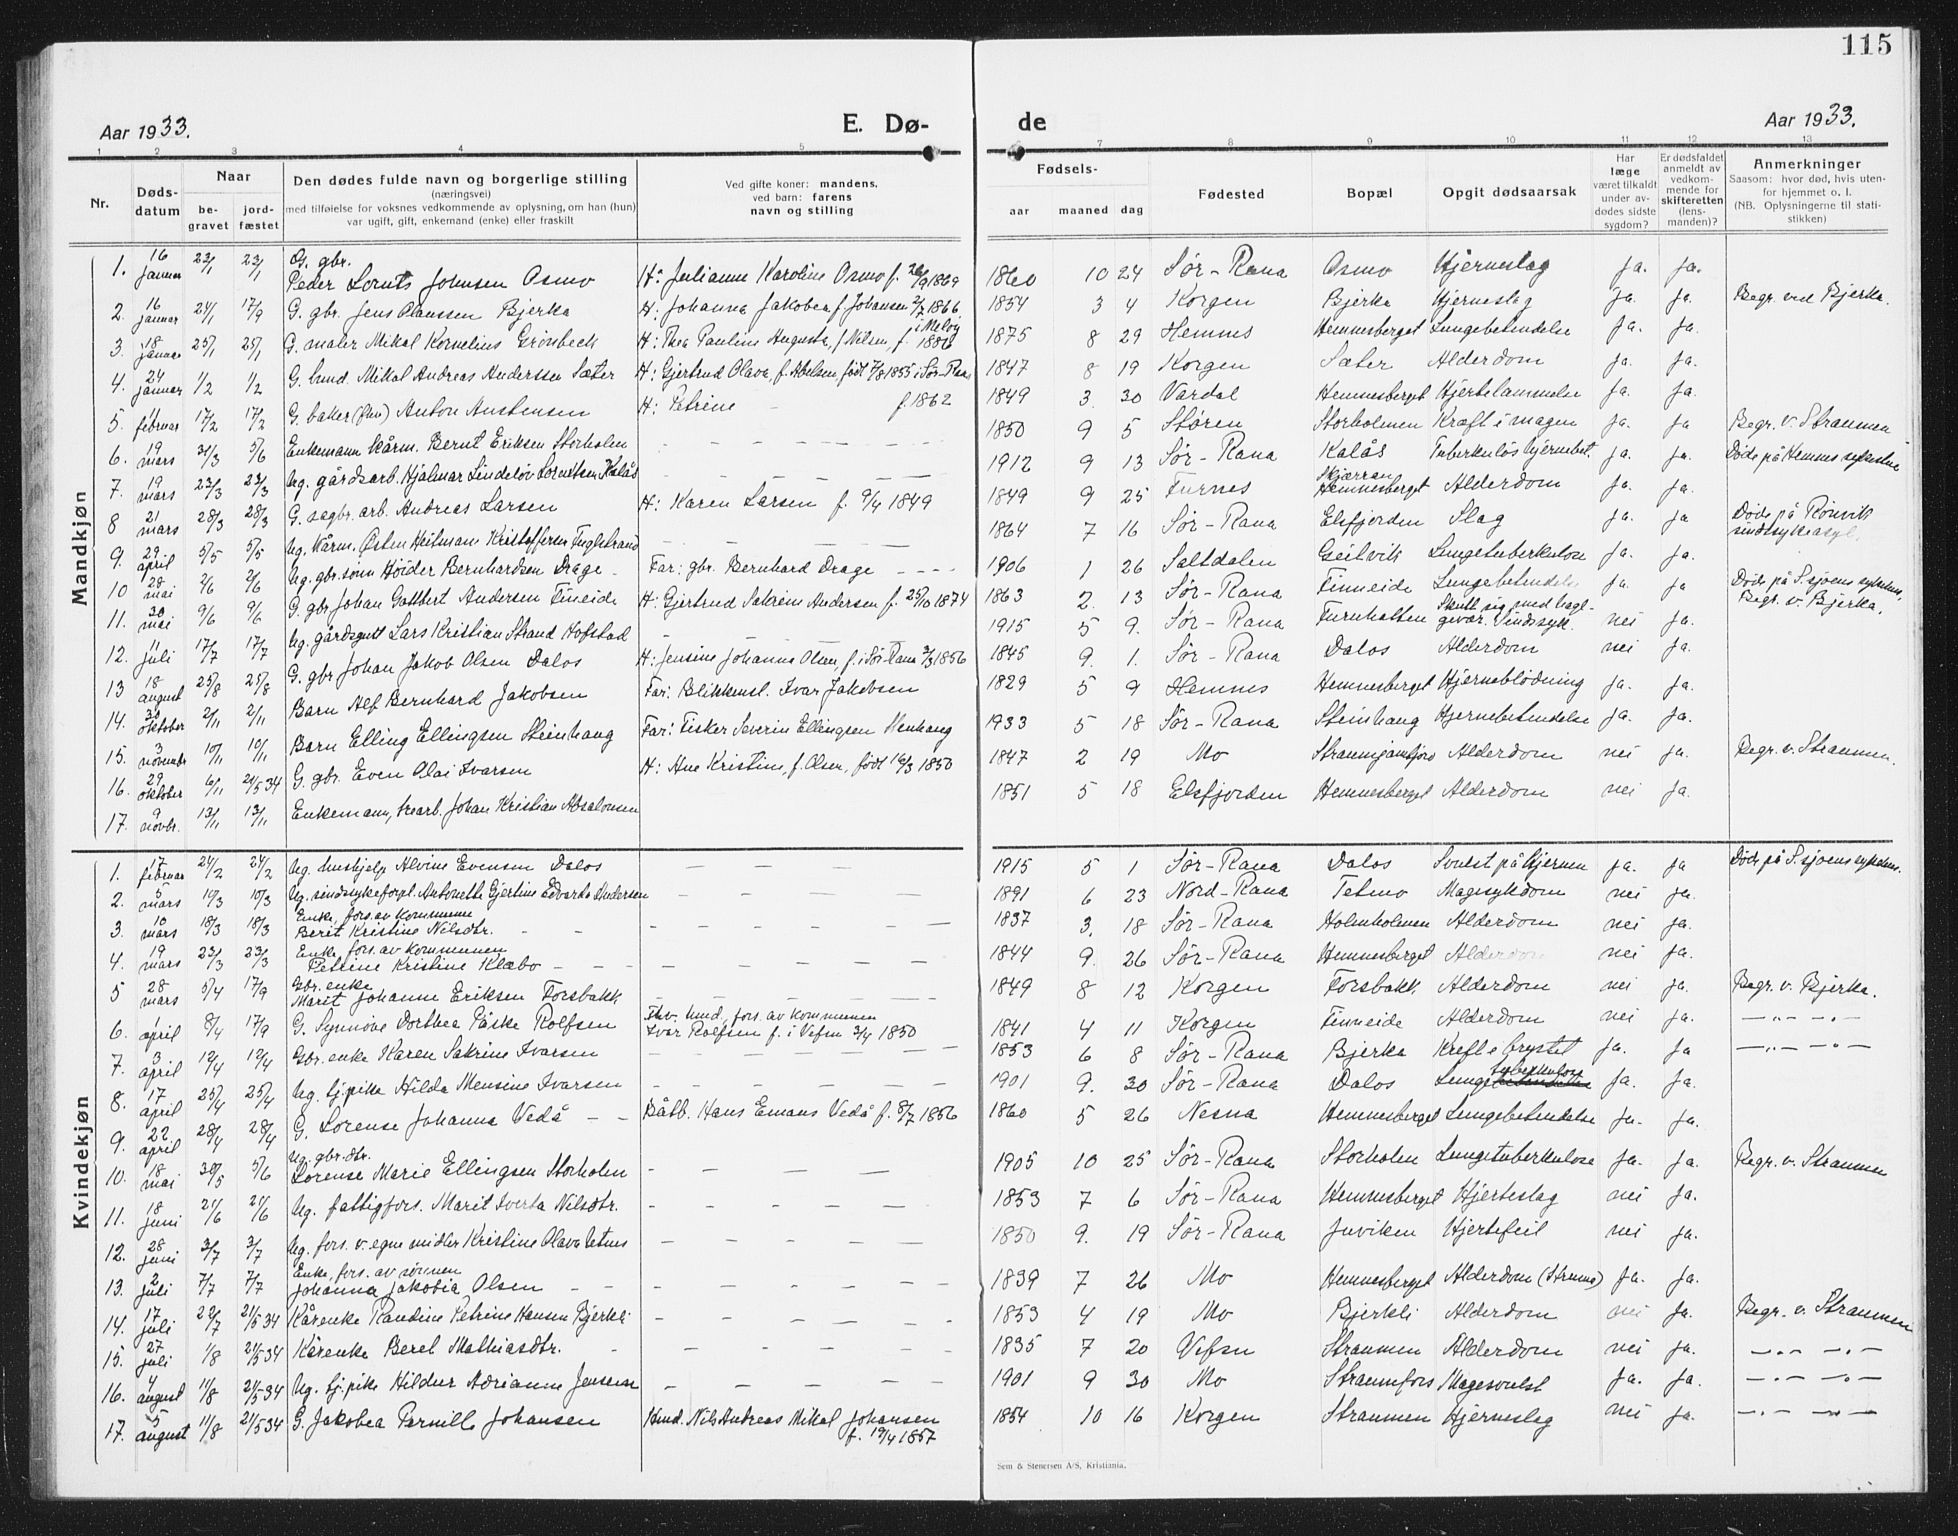 115
Aar 1933. E. Dø- de Aar 1933.
1 2 3 4 5 7 8 9 10 11 12 13
Nr. Døds-datum Naar be-gravet jord-fæstet Den dødes fulde navn og borgerlige stilling (næringsvei) med tilføielse for voksnes vedkommende av oplysning, om han (hun) var ugift, gift, enkemand (enke) eller fraskilt Ved gifte koner: mandens. ved barn: farens navn og stilling Fødsels- aar maaned dag Fødested Bopæl Opgit dødsaarsak Har læge været tilkaldt under av-dødes sidste sygdom? Er dødsfaldet anmeldt av vedkom-mende for skifteretten (lens-manden)? Anmerkninger Saasom: hvor død, hvis uten-for hjemmet o. l. (NB. Oplysningerne til stati-stikken)
Mandkjøn
1. 16 januar 23/1 23/1 G. gbr. Peder Lornts Johnsen Osmo H: Julianne Karoline Osmo f. 26/9 1869 1860 10 24 Sør-Rana Osmo Hjerneslag ja. ja.
2. 16 januar 24/1 17/9 G. gbr. Jens Olaussen Bjerka H: Johanna Jakobea f. Johansen 2/7 1866. 1854 3 4 Korgen Bjerka Hjerneslag ja. ja. Begr. ved Bjerka.
3. 18 januar 25/1 25/1 G. maler Mikal Kornelius Grönbeck H: Thea Pauline Augusta, f. Nilsen, f. i Meløy 1886 1875 8 29 Hemnes Hemnesberget Lungebetendelse ja. ja.
4. 24 januar 1/2 1/2 G. hmd. Mikal Andreas Anderssen Sæter H: Gjertrud Olava, f. Abelsen, født 7/8 1855 i Sør-Rana 1847 8 19 Korgen Sæter Alderdom ja. ja.
5. 11 februar 17/2 17/2 G. baker Anton Austensen H: Petrine f. 1862 1849 3. 30 Vardal Hemnesberget Hjertelammelse ja. ja.
6. 19 mars 31/3 5/6 Enkemann kårm. Bernt Eriksen Storholen 1850 9 5 Støren Storholmen Kræft i magen ja. ja Begr. v. Straumen
7. 19 mars 23/3 23/3 Ug. gårdsarb. Hjalmar Lindeløv Lorentsen Kalås 1912 9 13 Sør-Rana Kalås Tuberkuløs hjernebet. ja. ja. Døde på Hemnes sykestue
8 21 mars 28/3 28/3 G. sagbr. arb. Andreas Larsen H: Karen Larsen f. 9/4 1849 1849 9 25 Furnes Hemnesberget Alderdom ja. ja.
9. 29 april 5/5 5/5 Ug. kårm. Østen Heitmann Kristoffersen Fuglstrand 1864 7 16 Sør-Rana Elsfjorden Slag ja. ja Døde på Rønvik sindsykeasyl.
10 28 mai 2/6 2/6 Ug. gbr.sønn Høider Bernhardsen Drage Far: gbr. Bernhard Drage 1906 1 26 Saltdalen Geitvik Lungetuberkulose ja. ja.
11. 30 mai 9/6 9/6 G. gbr Johan Gotthert Andersen Fineide H: Gjertrud Sakrine Andersen f. 25/10 1874 1863 2. 13 Sør-Rana Finneide Lungebetendelse ja. ja Døde på S.sjoens sykehus, Begr. v. Bjerka.
12. 11 juli 17/7 17/7 Ug. gårdsgutt Lars Kristian Strand Hofstad 1915 5 9. Sør-Rana Furuhatten Skutt sig med hagl-gevær. Sindssyk. nei ja.
13 18 august 25/8 25/8 G. gbr Johan Jakob Olsen Dalos H: Jensine Johanna Olsen, f. i Sør-Rana 2/3 1856 1845 9. 1. Sør-Rana Dalos Alderdom nei ja.
14. 30 oktober 2/11 2/11 Barn Alf Bernhard Jakobsen Far: Blikkensl. Ivar Jakobsen 1829 5 9 Hemnes Hemnesberget Hjerneblödning ja. ja.
15. 3 november 10/11 10/11 Barn Elling Ellingsen Steinhaug Far: Fisker Severin Ellingsen 1933 5 18 Sør-Rana Steinhaug Hjernebetendelse ja. ja.
16. 29 oktober 6/11 21/5 34 G. gbr. Even Olai Ivarsen H: Ane Kristine, f. Olsen, født 16/3 1850 1847 2 19 Mo Alderdom nei ja. Begr. v. Straumen.
17. 9 novbr. 13/11 13/11 Enkemann, Johan Kristian Absalonsen 1851 5 18 Elsfjorden Hemnesberget Alderdom nei ja.
Kvindekjøn
1. 17 februar 24/2 24/2 Ug. hushjelp Alvine Evensen Dalos 1915 5 1 Sør-Rana Dalos Svulst på hjernen ja. ja Døde på S.sjoens sykehus.
2. 5 mars 10/3 10/3 Ug. sindsykeforpl. Antonette Gjertine Edvarda Andersen 1891 6 23 Nord-Rana Tetmo Magesykdom nei ja.
3. 10 mars 18/3 18/3 Enke, fors. av kommunen Berit Kristine Nilsdtr. 1837 3. 18 Sør-Rana Holmholmen Alderdom nei ja.
4. 19 mars 23/3 23/3 Enke fors. av kommunen Petrine Kristine Klæbo 1844 9. 26 Sør-Rana Hemnesberget Alderdom nei ja.
5 28 mars 5/4 17/9 Gbr. enke Marit Johanne Eriksen Forsbakk 1849 8 12 Korgen Forsbakk Alderdom nei ja. Begr. v. Bjerka.
6. 1 april 8/4 17/9 G. Synnøve Dorthea Påske Rolfsen hmd., fors. av kommunen Ivar Rolfsen f. i Vefsn 3/4 1850 1841 4 11 Korgen Finneide Alderdom nei ja. —"— —"—
7. 3 april 12/4 12/4 Gbr. enke Karen Sakrine Ivarsen 1853 6 8 Sør-Rana Bjerka Kreft i brystet ja. ja —"— —"—
8. 17 april 25/4 25/4 Ug. tj.pike Hilda Mensine Ivarsen 1901 9. 30 Sør-Rana Dalos Lungetuberkulose ja. ja.
9. 22 april 28/4 28/4 G. Lorense Johanna Vedå Båtb. Hans Emaus Vedå f. 8/7 1856 1860 5 26 Nesna Hemnesberget Lungebetendelse ja. ja.
10. 18 mai 30/5 5/6 Ug. gbr.dtr. Lorense Marie Ellingsen Storholen 1905 10 25 Sør-Rana Storholen Lungetuberkulose ja. ja. Begr. v. Straumen
11. 18 juni 21/6 21/6 Ug. fattigfors. Marit Iverta Nilsdtr. 1853 7 6 Sør-Rana Hemnesberget Hjerteslag nei ja.
12. 28 juni 3/7 3/7 Ug. fors. v. egne midler Kristine Olava Utnes 1850 9. 19 Sør-Rana Juviken Hjertefeil nei ja.
13. 2 juli 7/7 7/7 Enke, fors. av sønnen Johanna Jakobia Olsen 1839 7 26 Mo Hemnesberget Alderdom (Struma) ja. ja.
14. 17 juli 22/7 21/5 34 Kårenke Randine Petrine Hansen Bjerkli 1853 4 19 Mo Bjerkli Alderdom nei ja. Begr. v. Straumen
15. 27 juli 1/8 21/5 34 Kårenke Beret Mathiasdtr. 1835 7 20 Vefsn Straumen Alderdom nei ja. —"— —"—
16. 4 august 11/8 21/5 34 Ug. tj.pike Hildur Adrianne Jensen 1901 9 30 Mo Straumfors Magesvulst ja. ja. —"— —"—
17. 5 august 11/8 21/5 34 G. Jakobea Pernille Johansen Hmd. Nils Andreas Mikal Johansen f. 19/4 1857 1854 10 16 Korgen Straumen Hjerneslag nei ja. —"— —"—
Sem & Stenersen A/S, Kristiania.